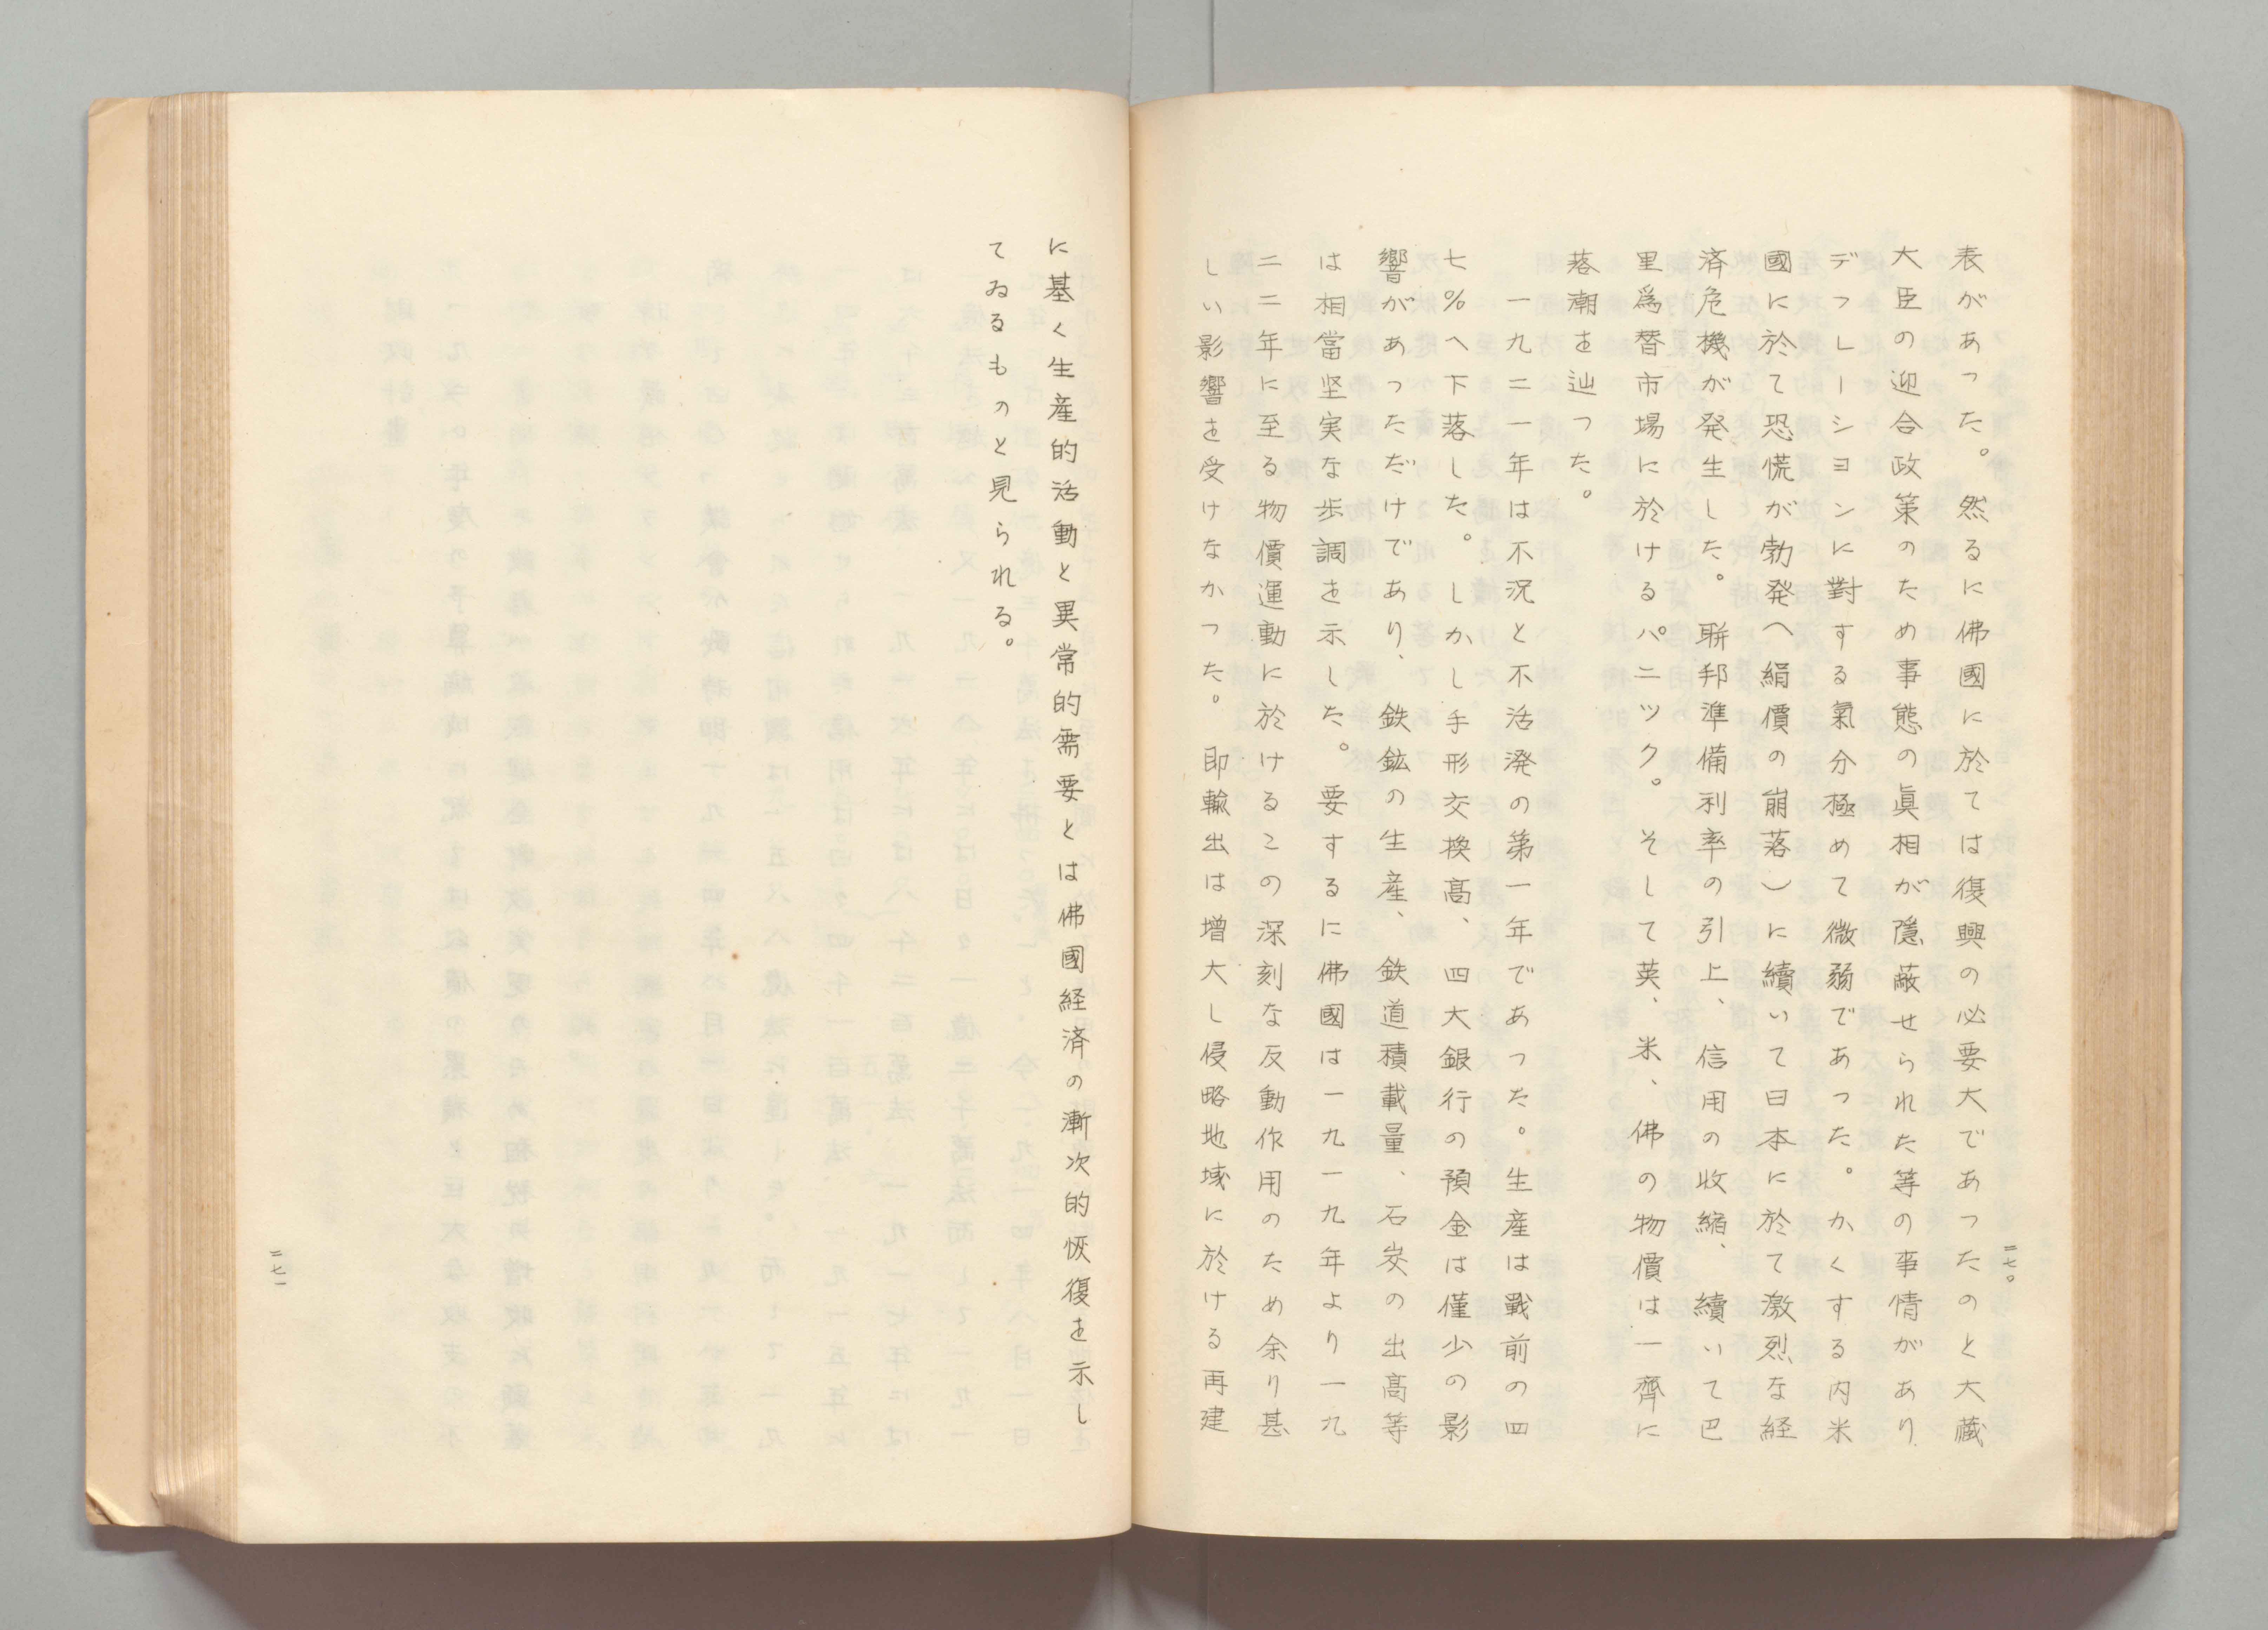 表があつた。然るに佛國に於ては復興の必要大であつたのと大藏
大臣の迎合政策のため事態の眞相が隱蔽せられた等の事情があり
デフレーシヨンに對する氣分極めて微弱であつた。かくする内米
國に於て恐慌が勃発（絹價の崩落）に續いて日本に於て激烈な経
済危機が発生した。聯邦準備利率の引上、信用の收縮、續いて巴
里爲替市場に於けるパニツク。そして英、米、佛の物價は一齊に
落潮を辿つた。
一九二一年は不況と不活溌の第一年であつた。生産は戰前の四
七％へ下落した。しかし手形交換高、四大銀行の預金は僅少の影
響があつただけであり、鉄鉱の生産、鉄道積載量、石炭の出高等
は相當坚実な歩調を示した。要するに佛國は一九一九年より一九
二二年に至る物價運動に於けるこの深刻な反動作用のため余り甚
しい影響を受けなかつた。即輸出は增大し侵略地域に於ける再建
二七〇
に基く生産的活動と異常的需要とは佛國経済の漸次的恢復を示し
てゐるものと見られる。
二七一